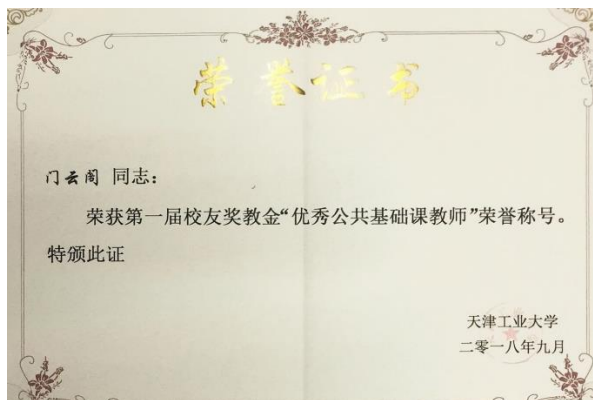 荣誉证书
门云阁 同志：
荣获第一届校友奖教金“优秀公共基础课教师”荣誉称号。
特颁此证
天津工业大学
二零一八年九月